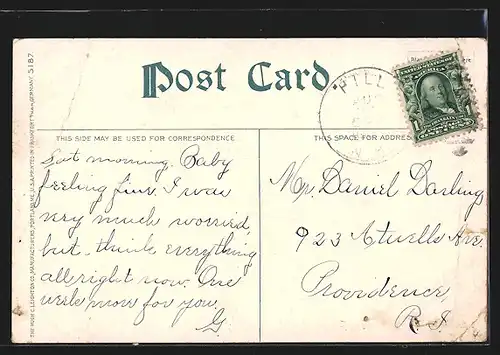 POST CARD
THIS SIDE MAY BE USED FOR CORRESPONDENCE
THIS SPACE FOR ADDRESS
morning. Baby
feeling fine. I was
very much worried
but think everything
all right now. One
week more for you
G.
Mr Daniel Darling
923 Atwells Ave.
Providence,
R. I.
THE HUGH C. LEIGHTON CO., MANUFACTURERS, PORTLAND, ME., U.S.A. PRINTED IN FRANKFORT ON MAIN, GERMANY. 5187